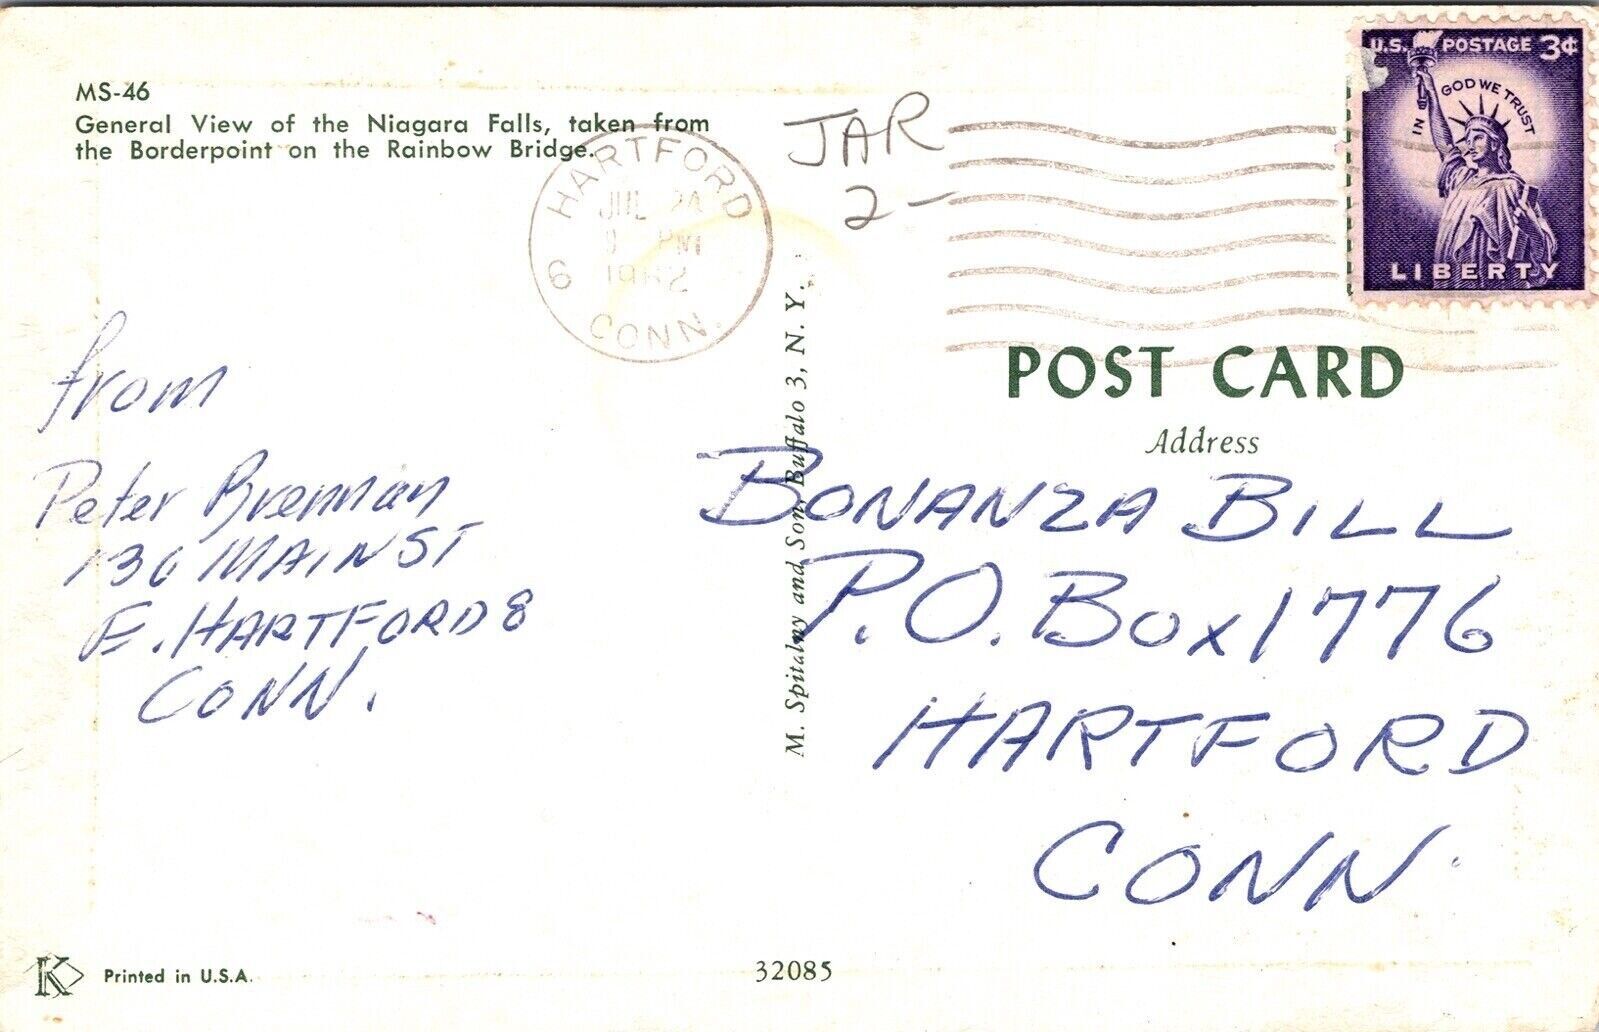 MS-46
General View of the Niagara Falls, taken from
the Borderpoint on the Rainbow Bridge.
HARTFORD
JUL 24
PM
1962
6
CONN.
JAR
2-
U.S. POSTAGE 3¢
IN GOD WE TRUST
LIBERTY
from
Peter Brennan
136 MAIN ST
E. HARTFORD 8
CONN.
M. Spitalny and Son, Buffalo 3, N. Y.
POST CARD
Address
BONANZA BILL
P.O. BOX 1776
HARTFORD
CONN.
K
Printed in U.S.A.
32085